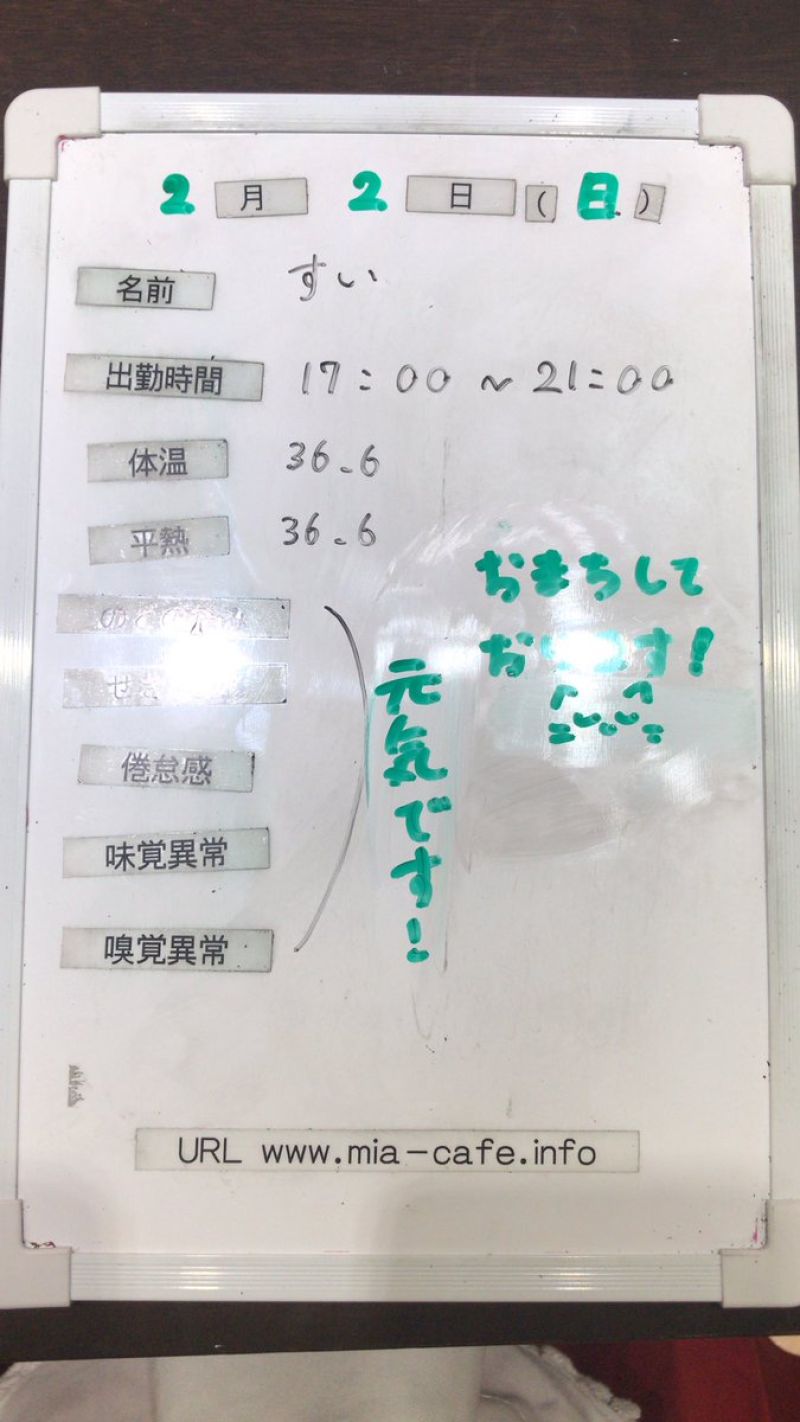 2月2日(日)
名前 すい
出勤時間 17:00～21:00
体温 36.6
平熱 36.6
倦怠感
味覚異常
嗅覚異常
元気です!
おまちして
おります!
URL www.mia-cafe.info